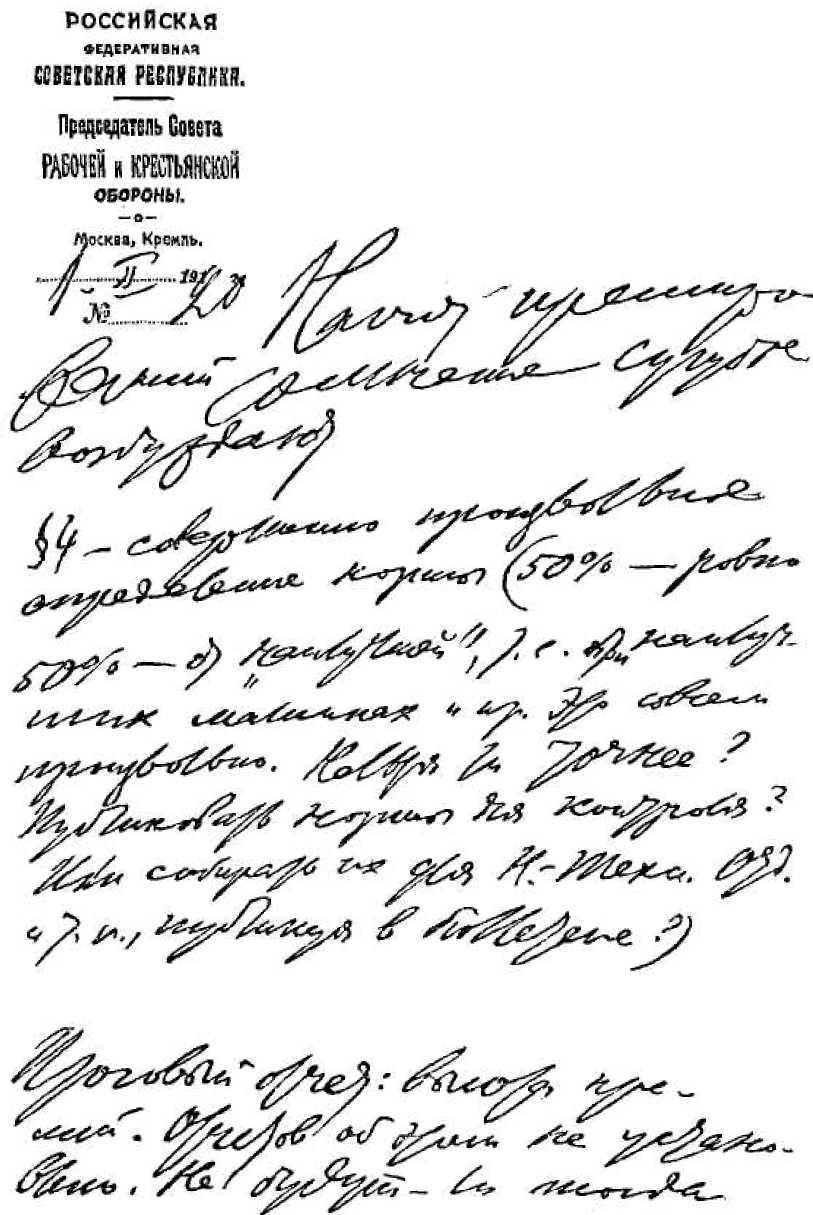 РОССИЙСКАЯ
ФЕДЕРАТИВНАЯ
СОВЕТСКАЯ РЕСПУБЛИКА.
Председатель Совета
РАБОЧЕЙ и КРЕСТЬЯНСКОЙ
ОБОРОНЫ.
Москва, Кремль.
1. II 1920
№
Насчет премиро-
ваний сомнения сугубые
возбуждают
§4 — совершенно произвольное
определение нормы (50% — ровно
50% — от „наилучшей", т. е. при наилуч-
ших машинах и пр. Это совсем
произвольно. Нельзя ли точнее?
Публиковать нормы для контроля?
Или собирать их для Н.-Техн. Отд.
и т. п., публикуя в бюллетене?)
Итоговый отчет: выдача пре-
мий. Отчетов об этом не устано-
влено. Не будут-ли тогда